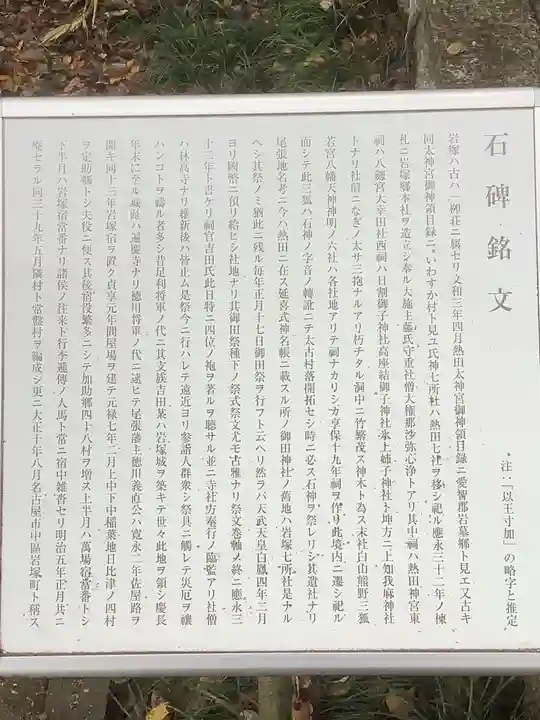 石碑銘文
注:「以王寸加」の略字と推定
岩塚ハ古ハ一柳荘ニ属セリ文和三年四月熱田太神宮御神領目録ニ愛智郡岩墓郷ト見エ又古キ
同太神宮御神領目録ニ。いわすか村ト見ユ氏神七所社ハ熱田七社ヲ移シ祀ル應永三十二年ノ棟
札ニ岩塚郷本社ヲ造立シ奉ル大施主藤氏守重社僧大権那沙弥心浄トアリ其中祠ハ熱田神宮東
祠ハ八劔宮大幸田社西祠ハ日割御子神社高座結御子神社氷上姉子神社ト坤方ニ上知我麻神社
トナリ社前ニなぎノ木ノ太サ三抱ナルアリ朽チタル洞中ニ竹繁茂ス神木ト為ス末社白山熊野三狐
若宮八幡天神神明ノ六社ハ各社地アリテ祠ナカリシヲ享保十九年祠ヲ作リ此境内ニ遷シ祀ル
而シテ此三狐ハ石神ノ字音ノ轉訛ニテ太古村落開拓セシ時ニ必ス石神ヲ祭レリシ其遺社ナリ
尾張地名考ニ今ハ熱田ニ在ス延喜式神名帳ニ載スル所ノ御田神社ノ舊地ハ岩塚七所社是ナル
ヘシ其祭ノミ猶此ニ残ル毎年正月十七日御田祭ヲ行フト云ヘリ然ラハ天武天皇白鳳四年二月
ヨリ國幣ニ預リ給ヒシ社地ナリ其御田祭種下ノ祭式祭文尤モ古雅ナリ祭文巻軸ノ終ニ應永三
十二年ト書ケリ祠官吉田氏此日特ニ四位ノ袍ヲ著ルヲ聴サル並ニ寺社方奉行ノ臨監アリ社僧
ハ林高寺ナリ維新後ハ皆止ム是祭今ニ行ハレテ遠近ヨリ参詣人群衆シ祭具ニ觸レテ災厄ヲ禳
ハンコトヲ祷ル者多シ昔足利将軍ノ代ニ其支族吉田某ハ岩塚城ヲ築キテ世々此地ヲ領シ慶長
年末ニ至ル城趾ハ遍慶寺ナリ徳川将軍ノ代ニ逮ヒテ尾張藩主徳川義直公ハ寛永二年佐屋路ヲ
開キ同十三年岩塚宿ヲ置ク貞享元年問屋場ヲ建テ元禄七年二月上中下中稲葉地日比津ノ四村
ヲ定助郷トシ夫役ニ便ス其後宿役繁多ニシテ加助郷四十八村ヲ増ス上半月ハ萬場宿當番トシ
下半月ハ岩塚宿當番ナリ諸侯ノ往来ト行李逓傳ノ人馬ト常ニ宿中雑沓セリ明治五年正月其ニ
廃セラル同三十九年五月隣村ト常盤村ヲ編成シ更ニ大正十年八月名古屋市中區岩塚町ト稱ス